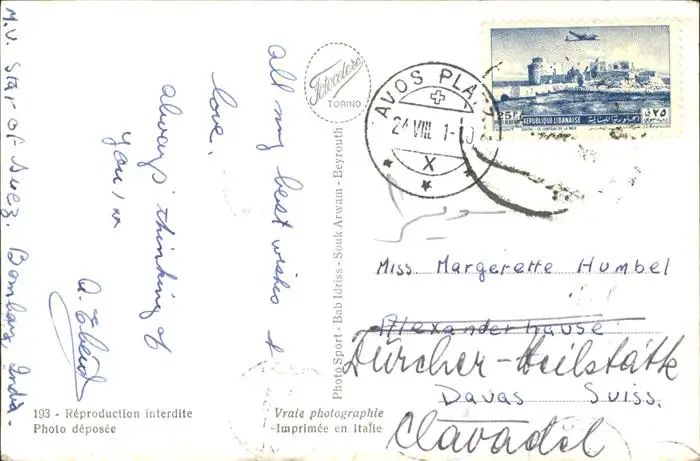 M.V. Star of Suez. Bombay, India.
all my best wishes &
love.
always thinking of
you
Fotocelere
TORINO
193 - Réproduction interdite
Photo déposée
Vraie photographie
Imprimée en Italie
Photo Sport - Bab Idriss - Souk Arwam - Beyrouth
AVOS PLA
24 VIII 1-10
X
25P
REPUBLIQUE LIBANAISE
الجمهورية اللبنانية
٢٥
Miss. Margerette Humbel
Alexanderhause
Zürcher-Heilstätte
Davas Suiss.
Clavadel